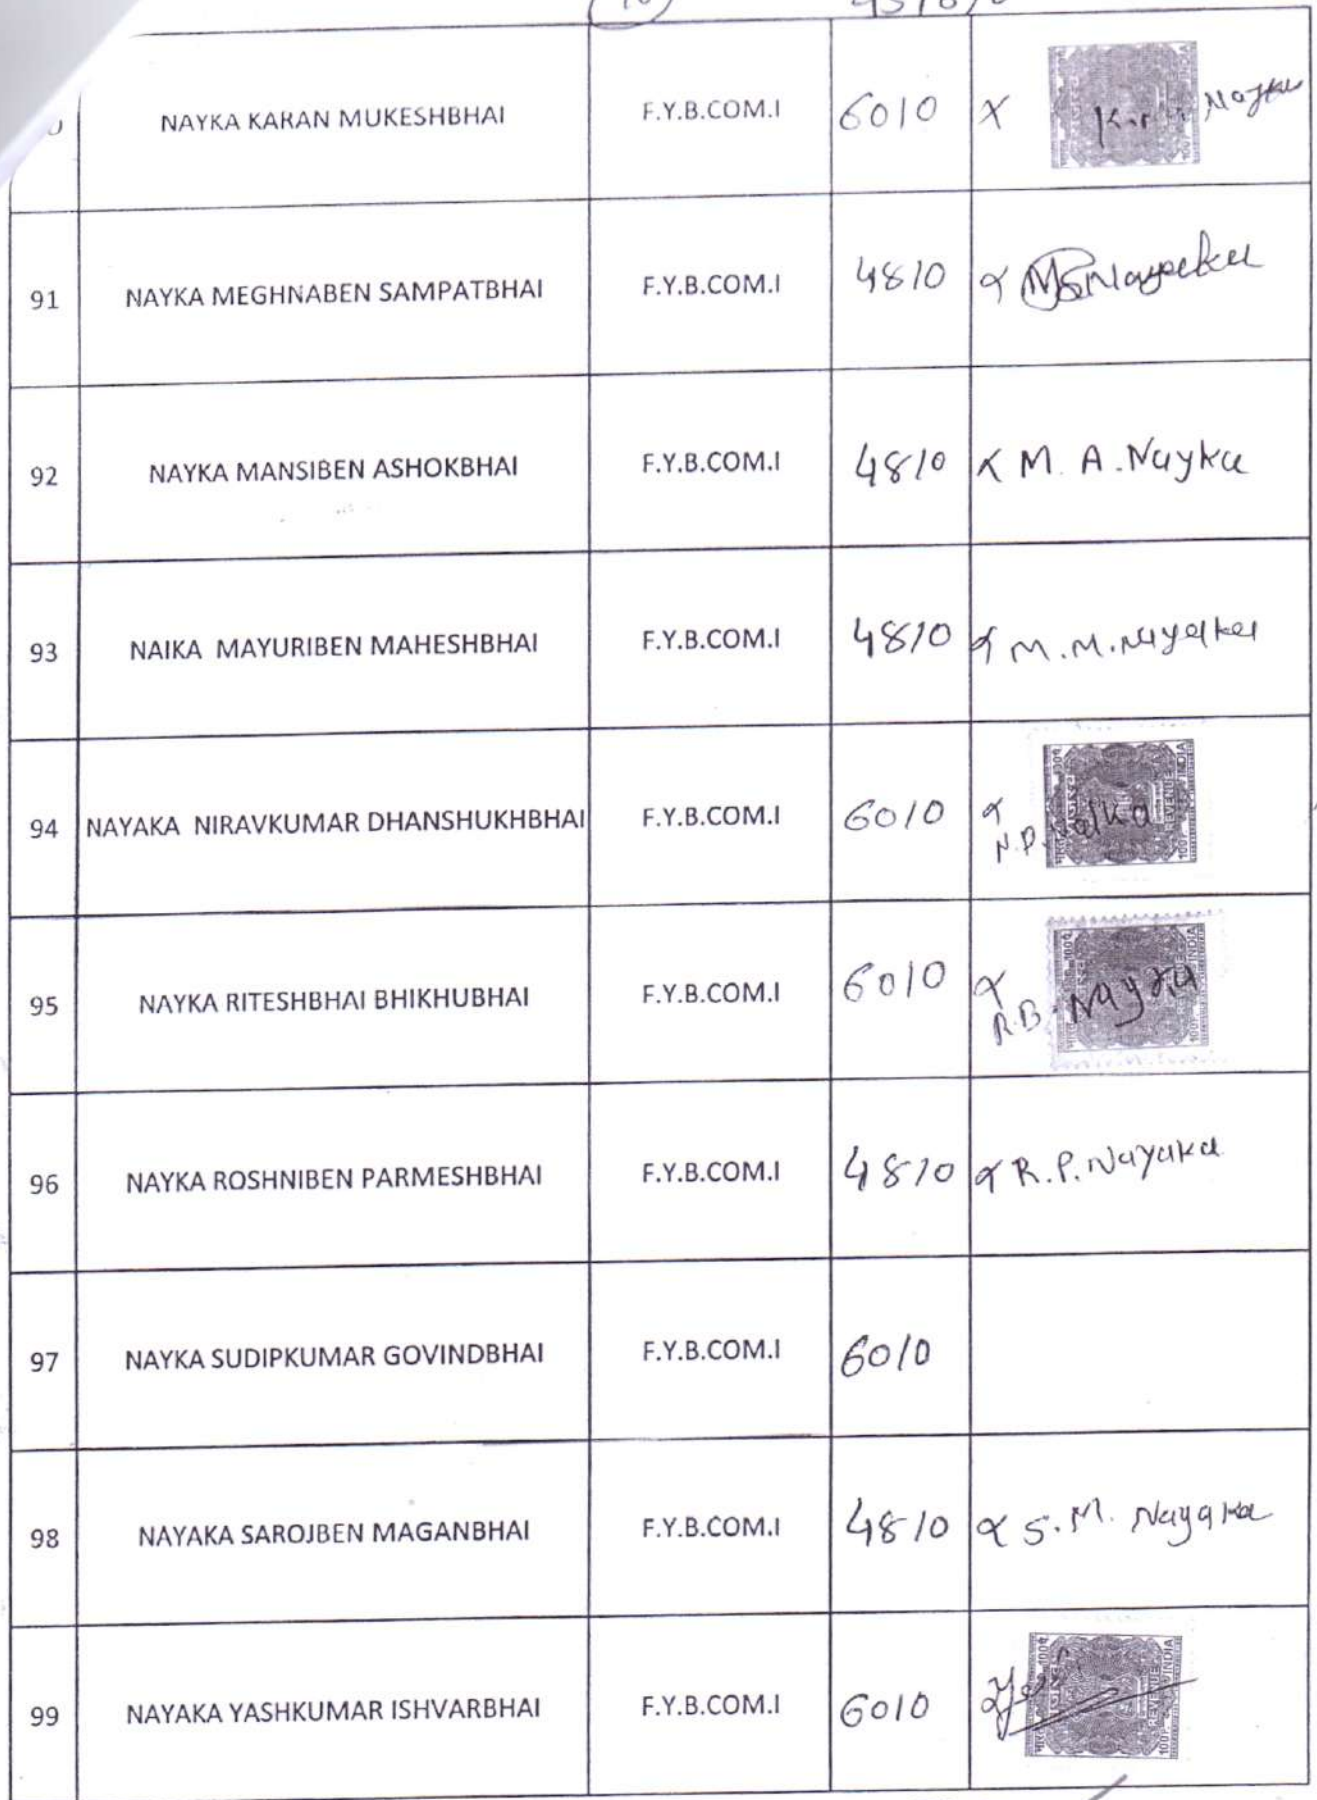 NAYKA KARAN MUKESHBHAI F.Y.B.COM.I 6010 X Nayka
91 NAYKA MEGHNABEN SAMPATBHAI F.Y.B.COM.I 4810
92 NAYKA MANSIBEN ASHOKBHAI F.Y.B.COM.I 4810 M. A. Nayka
93 NAIKA MAYURIBEN MAHESHBHAI F.Y.B.COM.I 4810 M.M. Nayaka
94 NAYAKA NIRAVKUMAR DHANSHUKHBHAI F.Y.B.COM.I 6010
95 NAYKA RITESHBHAI BHIKHUBHAI F.Y.B.COM.I 6010 R.B. Nayka
96 NAYKA ROSHNIBEN PARMESHBHAI F.Y.B.COM.I 4810 R.P. Nayaka
97 NAYKA SUDIPKUMAR GOVINDBHAI F.Y.B.COM.I 6010
98 NAYAKA SAROJBEN MAGANBHAI F.Y.B.COM.I 4810 S. M. Nayaka
99 NAYAKA YASHKUMAR ISHVARBHAI F.Y.B.COM.I 6010